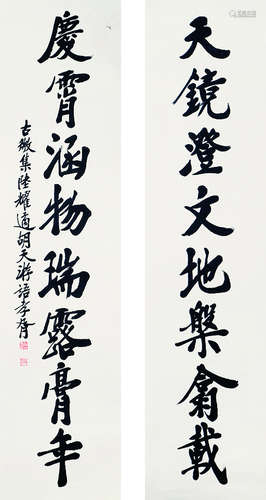 天鏡澄文地槃龠載
慶霄涵物瑞露膏年
古微集陸耀遹胡天游語孝胥